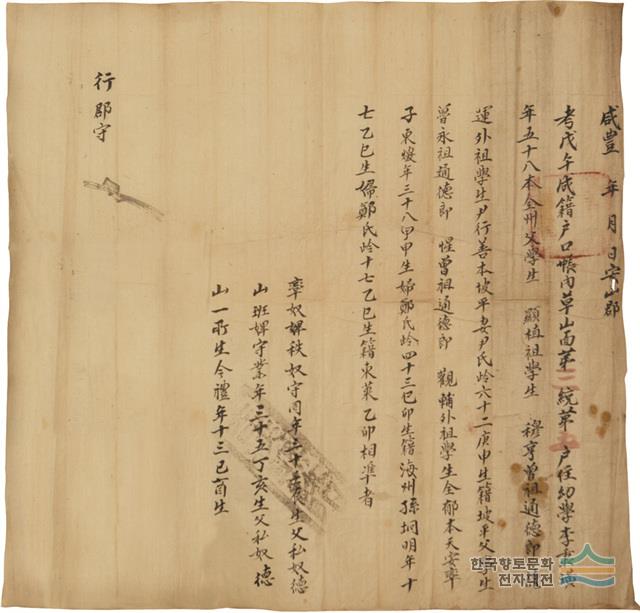 咸豊 年 月 日安山郡
考戊午成籍戶口帳內草山面第二統第五戶住幼學李
年五十八本全州父學生 顯植祖學生 穆寧曾祖通德郎
運外祖學生尹行善本坡平妻尹氏岭六十二庚申生籍坡平父學生
晉永祖通德郎 惺曾祖通德郎 觀輔外祖學生全郁本天安率
子東煥年三十八甲申生婦鄭氏岭四十三巳卯生籍海州孫垌明年十
七乙巳生婦鄭氏岭十七乙巳生籍東萊乙卯相準者
率奴婢秩奴守同年三十 生父私奴德
山班婢守業年三十五丁亥生父私奴德
山一所生今禮年十三己酉生
行郡守
한국향토문화
전자대전